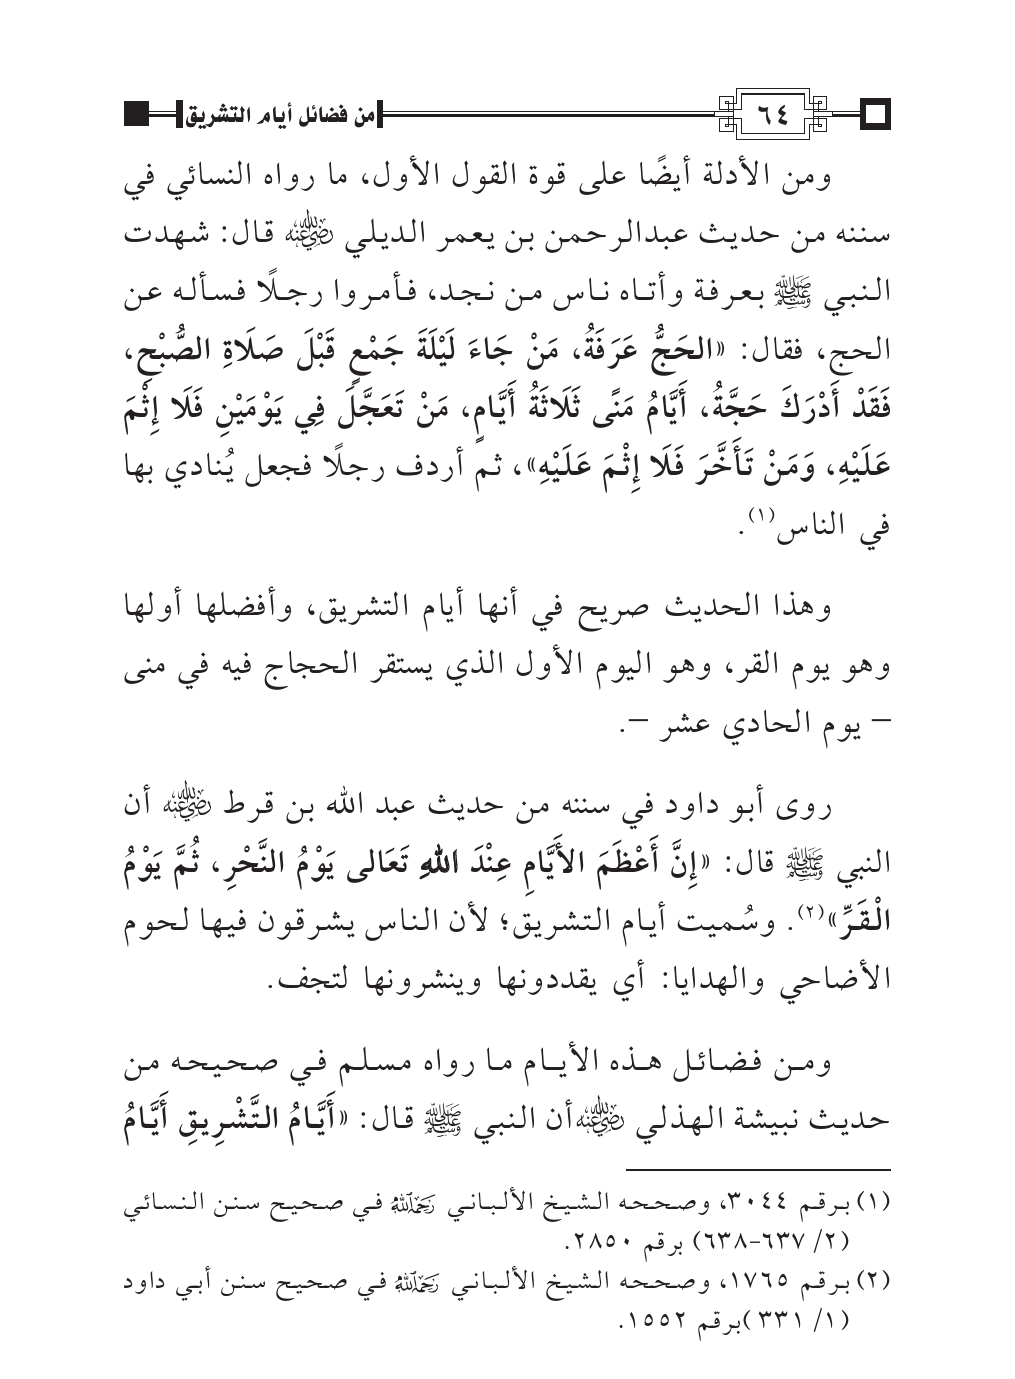 ٦٤ من فضائل أيام التشريق
ومن الأدلة أيضًا على قوة القول الأول، ما رواه النسائي في
سننه من حديث عبدالرحمن بن يعمر الديلي رضي الله عنه قال: شهدت
النبي ﷺ بعرفة وأتاه ناس من نجد، فأمروا رجلًا فسأله عن
الحج، فقال: «الحَجُّ عَرَفَةُ، مَنْ جَاءَ لَيْلَةَ جَمْعٍ قَبْلَ صَلَاةِ الصُّبْحِ،
فَقَدْ أَدْرَكَ حَجَّةُ، أَيَّامُ مَنًى ثَلَاثَةُ أَيَّامٍ، مَنْ تَعَجَّلَ فِي يَوْمَيْنِ فَلَا إِثْمَ
عَلَيْهِ، وَمَنْ تَأَخَّرَ فَلَا إِثْمَ عَلَيْهِ»، ثم أردف رجلًا فجعل يُنادي بها
في الناس(١).
وهذا الحديث صريح في أنها أيام التشريق، وأفضلها أولها
وهو يوم القر، وهو اليوم الأول الذي يستقر الحجاج فيه في منى
– يوم الحادي عشر –.
روى أبو داود في سننه من حديث عبد الله بن قرط رضي الله عنه أن
النبي ﷺ قال: «إِنَّ أَعْظَمَ الأَيَّامِ عِنْدَ اللهِ تَعَالى يَوْمُ النَّحْرِ، ثُمَّ يَوْمُ
الْقَرِّ»(٢). وسُميت أيام التشريق؛ لأن الناس يشرقون فيها لحوم
الأضاحي والهدايا: أي يقددونها وينشرونها لتجف.
ومن فضائل هذه الأيام ما رواه مسلم في صحيحه من
حديث نبيشة الهذلي رضي الله عنه أن النبي ﷺ قال: «أَيَّامُ التَّشْرِيقِ أَيَّامُ
(١) برقم ٣٠٤٤، وصححه الشيخ الألباني رحمه الله في صحيح سنن النسائي
(٢/ ٦٣٧-٦٣٨) برقم ٢٨٥٠.
(٢) برقم ١٧٦٥، وصححه الشيخ الألباني رحمه الله في صحيح سنن أبي داود
(١/ ٣٣١)برقم ١٥٥٢.